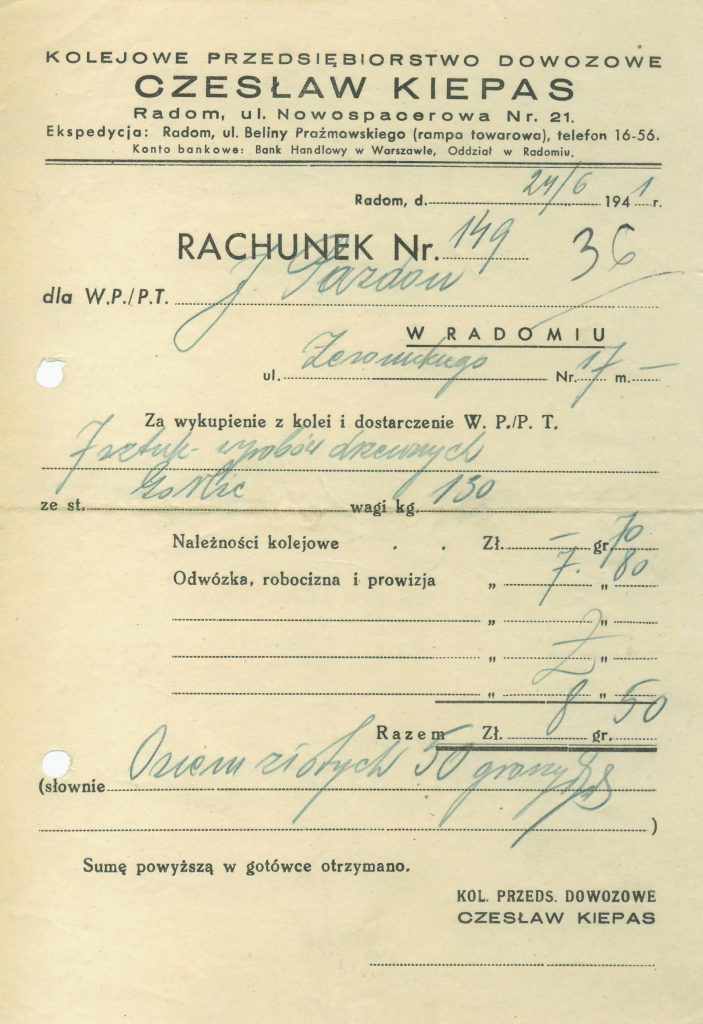 KOLEJOWE PRZEDSIĘBIORSTWO DOWOZOWE
CZESŁAW KIEPAS
Radom, ul. Nowospacerowa Nr. 21.
Ekspedycja: Radom, ul. Beliny Prażmowskiego (rampa towarowa), telefon 16-56.
Konto bankowe: Bank Handlowy w Warszawie, Oddział w Radomiu.
Radom, d. 24/6 1941 r.
RACHUNEK Nr. 149 36
dla W.P./P.T. J.
W RADOMIU
ul. Żeromskiego Nr. 17 m. —
Za wykupienie z kolei i dostarczenie W. P./P. T.
7 sztuk wyrobów drzewnych
ze st. wagi kg. 130
Należności kolejowe . . Zł. — gr. 70
Odwózka, robocizna i prowizja „ 7. " 80
„ "
„ "
„ "
Razem Zł. 8 gr. 50
(słownie Osiem złotych 50 groszy
)
Sumę powyższą w gotówce otrzymano.
KOL. PRZEDS. DOWOZOWE
CZESŁAW KIEPAS